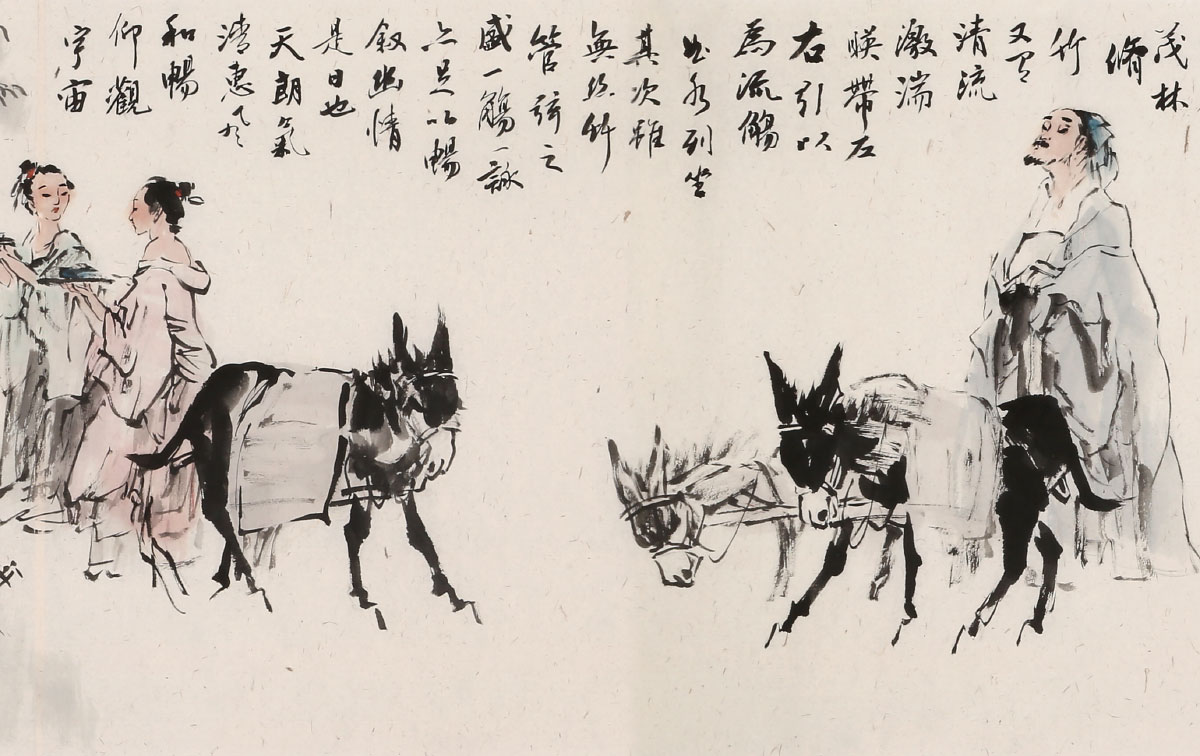 茂林
脩
竹
又有
清流
激湍
暎帶左
右引以
為流觴
曲水列坐
其次雖
無絲竹
管弦之
盛一觴一詠
亦足以暢
叙幽情
是日也
天朗氣
清惠風
和暢
仰觀
宇宙